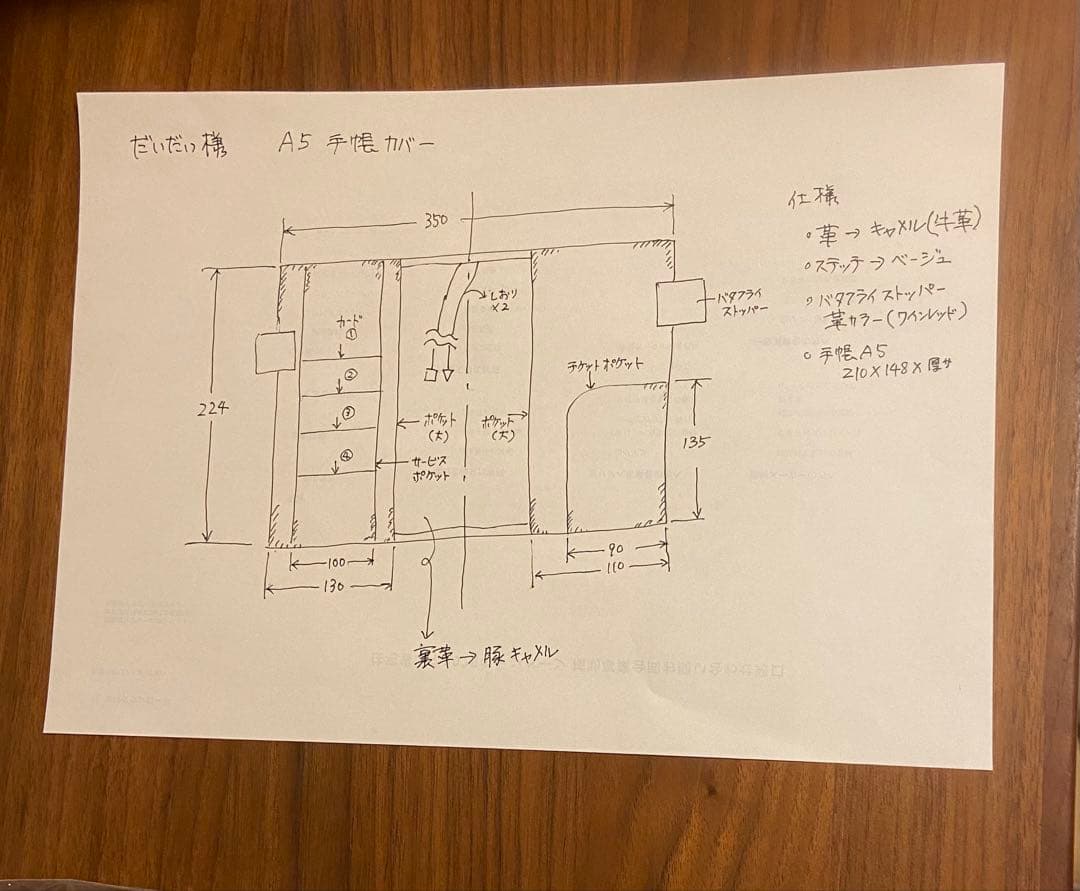 だいだい様 A5 手帳カバー
仕様
◦革→キャメル(牛革)
◦ステッチ→ベージュ
◦バタフライストッパー
革カラー(ワインレッド)
◦手帳A5
210×148×厚サ
350
しおり
×2
バタフライ
ストッパー
カード
①
②
③
④
チケットポケット
ポケット
(大)
ポケット
(大)
サービス
ポケット
224
135
100
130
90
110
裏革→豚キャメル